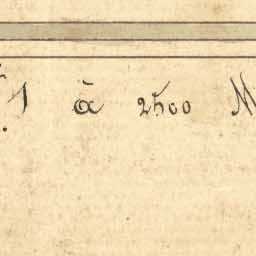 1 à 2500 M